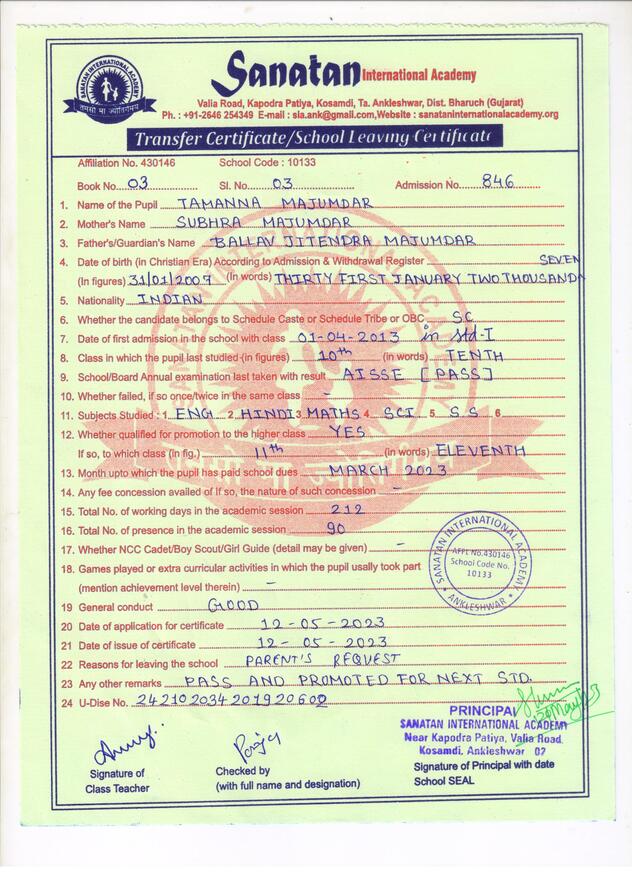 SANATAN INTERNATIONAL ACADEMY
तमसो मा ज्योतिर्गमय
Sanatan International Academy
Valia Road, Kapodra Patiya, Kosamdi, Ta. Ankleshwar, Dist. Bharuch (Gujarat)
Ph. : +91-2646 254349 E-mail : sia.ank@gmail.com,Website : sanataninternationalacademy.org
Transfer Certificate/School Leaving Certificate
Affiliation No. 430146 School Code : 10133
Book No. 03 Sl. No. 03 Admission No. 846
1. Name of the Pupil TAMANNA MAJUMDAR
2. Mother's Name SUBHRA MAJUMDAR
3. Father's/Guardian's Name BALLAV JITENDRA MAJUMDAR
4. Date of birth (in Christian Era) According to Admission & Withdrawal Register SEVEN
(In figures) 31/01/2007 (In words) THIRTY FIRST JANUARY TWO THOUSAND
5. Nationality INDIAN
6. Whether the candidate belongs to Schedule Caste or Schedule Tribe or OBC SC
7. Date of first admission in the school with class 01-04-2013 in std-I
8. Class in which the pupil last studied (in figures) 10th (in words) TENTH
9. School/Board Annual examination last taken with result AISSE [PASS]
10. Whether failed, if so once/twice in the same class -
11. Subjects Studied : 1 ENG 2. HINDI 3 MATHS 4 SCI 5 S.S 6
12. Whether qualified for promotion to the higher class YES
If so, to which class (in fig.) 11th (in words) ELEVENTH
13. Month upto which the pupil has paid school dues MARCH 2023
14. Any fee concession availed of If so, the nature of such concession -
15. Total No. of working days in the academic session 212
16. Total No. of presence in the academic session 90
17. Whether NCC Cadet/Boy Scout/Girl Guide (detail may be given) -
18. Games played or extra curricular activities in which the pupil usally took part
(mention achievement level therein) -
19 General conduct GOOD
20 Date of application for certificate 12-05-2023
21 Date of issue of certificate 12-05-2023
22 Reasons for leaving the school PARENT'S REQUEST
23 Any other remarks PASS AND PROMOTED FOR NEXT STD.
24 U-Dise No. 24210203420192060
SANATAN INTERNATIONAL ACADEMY
AFFI. No.430146
School Code No.
10133
ANKLESHWAR
PRINCIPAL
SANATAN INTERNATIONAL ACADEMY
Near Kapodra Patiya, Valia Road,
Kosamdi, Ankleshwar 02
Signature of Class Teacher
Checked by
(with full name and designation)
Signature of Principal with date
School SEAL